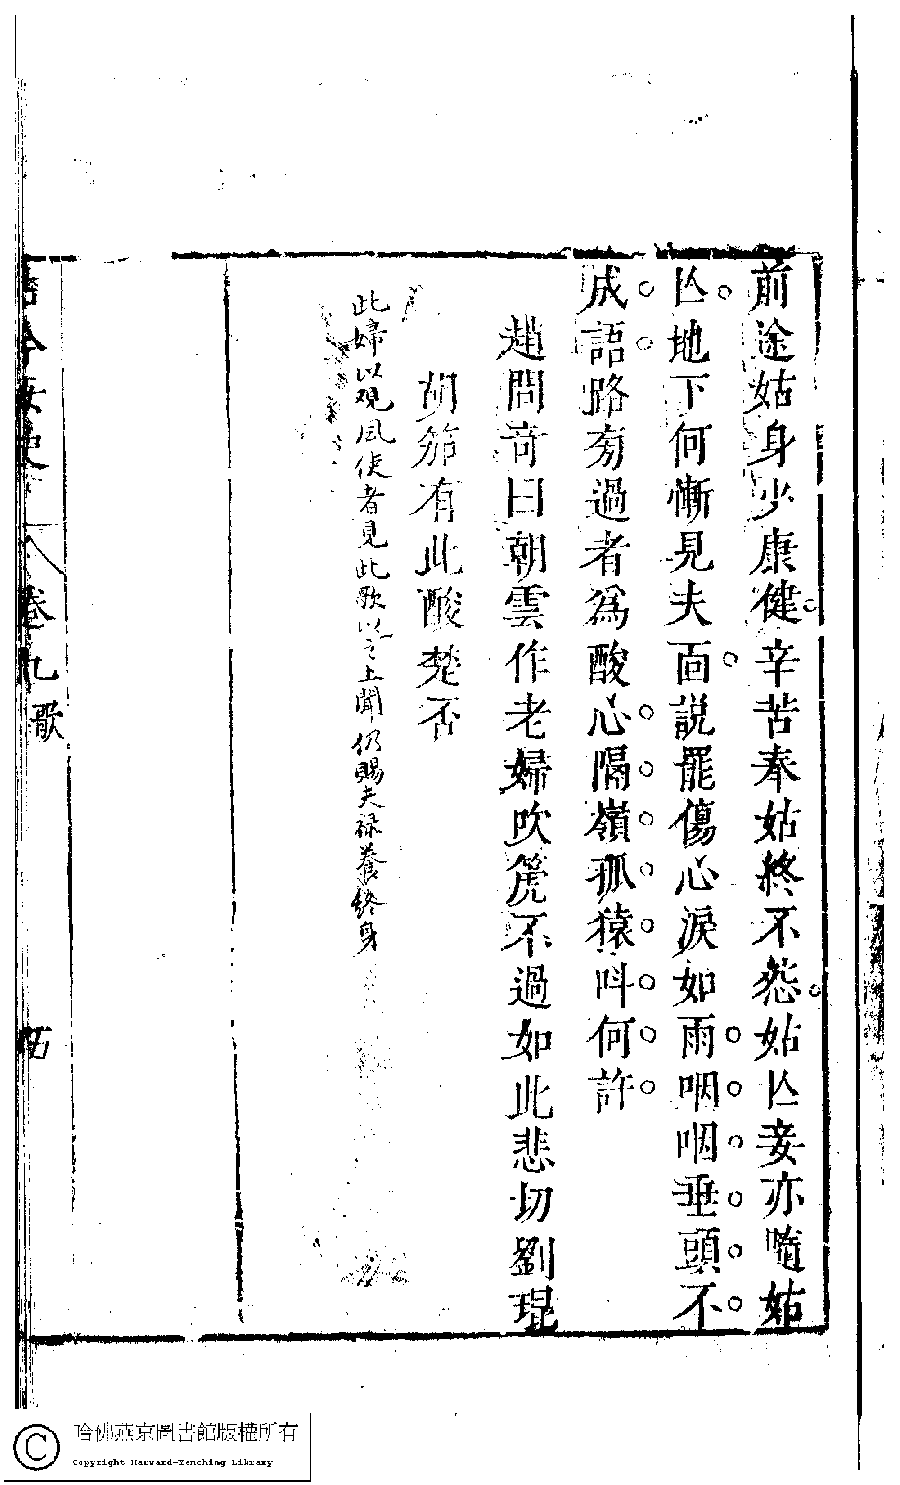 前途姑身少康健辛苦奉姑終不怨姑亾妾亦隨姑
亾地下何慚見夫面說罷傷心淚如雨咽咽垂頭不
成語路旁過者爲酸心隔嶺孤猿呌何許
趙問奇曰朝雲作老婦吹箎不過如此悲切劉琨
胡笳有此酸楚否
此婦以觀風使者見此歌以之上聞仍賜夫祿養終身
古今女史 卷九 歌
哈佛燕京圖書館版權所有
Copyright Harvard-Yenching Library